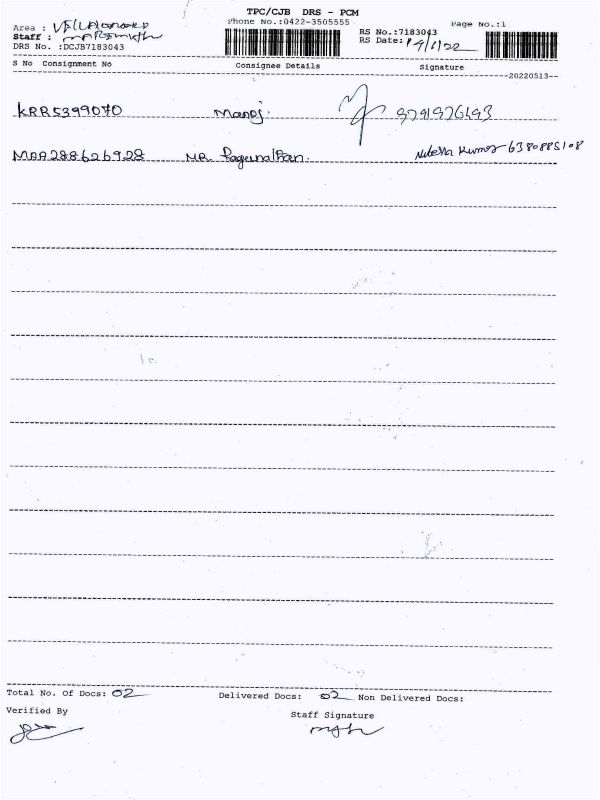 TPC/CJB DRS - PCM
Phone No.:0422-3505555 Page No.:1
Area :
Staff :
RS No.:7183043
DRS No. :DCJB7183043
RS Date:
S No Consignment No Consignee Details Signature
20220513
KRR5399070 Manoj.
MAA288626928 MR. 6380885108
Total No. Of Docs: 02 Delivered Docs: 02 Non Delivered Docs:
Verified By
Staff Signature